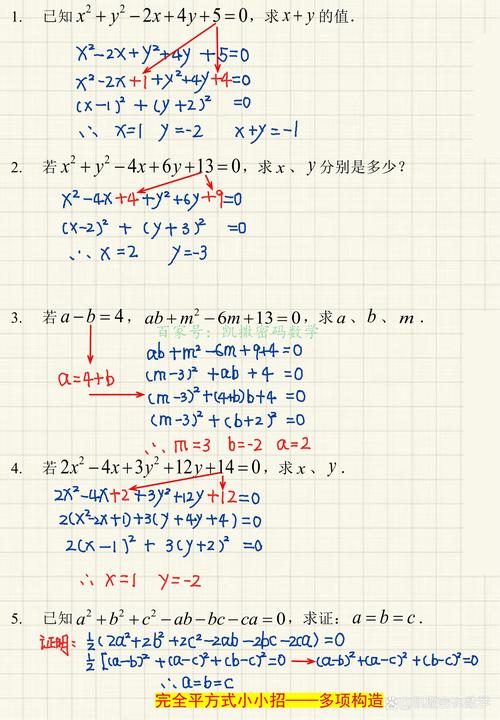 1. 已知 x²+y²−2x+4y+5=0,求 x+y 的值.
x²−2x+y²+4y+5=0
x²−2x+1+y²+4y+4=0
(x−1)²+(y+2)²=0
∴ x=1 y=−2 x+y=−1
2. 若 x²+y²−4x+6y+13=0,求 x、y 分别是多少?
x²−4x+4+y²+6y+9=0
(x−2)²+(y+3)²=0
∴ x=2 y=−3
3. 若 a−b=4,ab+m²−6m+13=0,求 a、b、m.
百家号:凯撒密码数学
ab+m²−6m+9+4=0
a=4+b
(m−3)²+ab+4=0
(m−3)²+(4+b)b+4=0
(m−3)²+(b+2)²=0
∴ m=3 b=−2 a=2
4. 若 2x²−4x+3y²+12y+14=0,求 x、y.
2x²−4x+2+3y²+12y+12=0
2(x²−2x+1)+3(y+4y+4)=0
2(x−1)²+3(y+2)²=0
∴ x=1 y=−2
5. 已知 a²+b²+c²−ab−bc−ca=0,求证:a=b=c.
证明: ½(2a²+2b²+2c²−2ab−2bc−2ca)=0
½[(a−b)²+(a−c)²+(b−c)²=0 → (a−b)²+(a−c)²+(b−c)²=0
∴ a=b=c
完全平方式小小招——多项构造